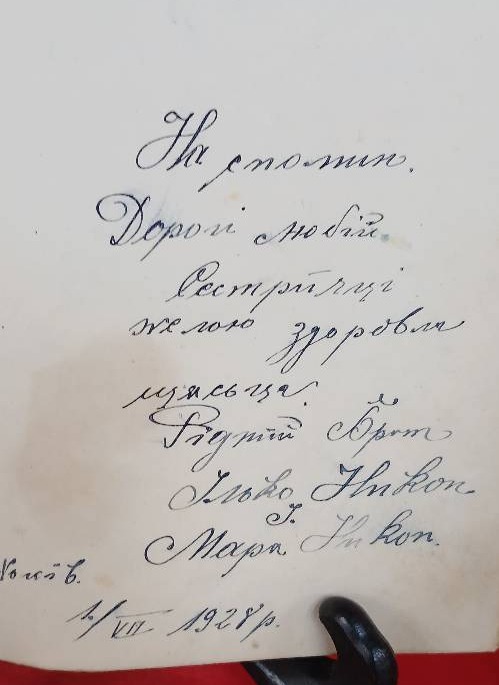 На спомин.
Дорогі любій
Сестричці
желаю здоровла
щасьца.
Рідний Брат
Ілько Никон
І.
Мара Никон.
1/VII 1928 р.